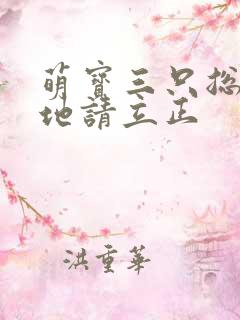 萌寶三只总
地請立正
洪重華